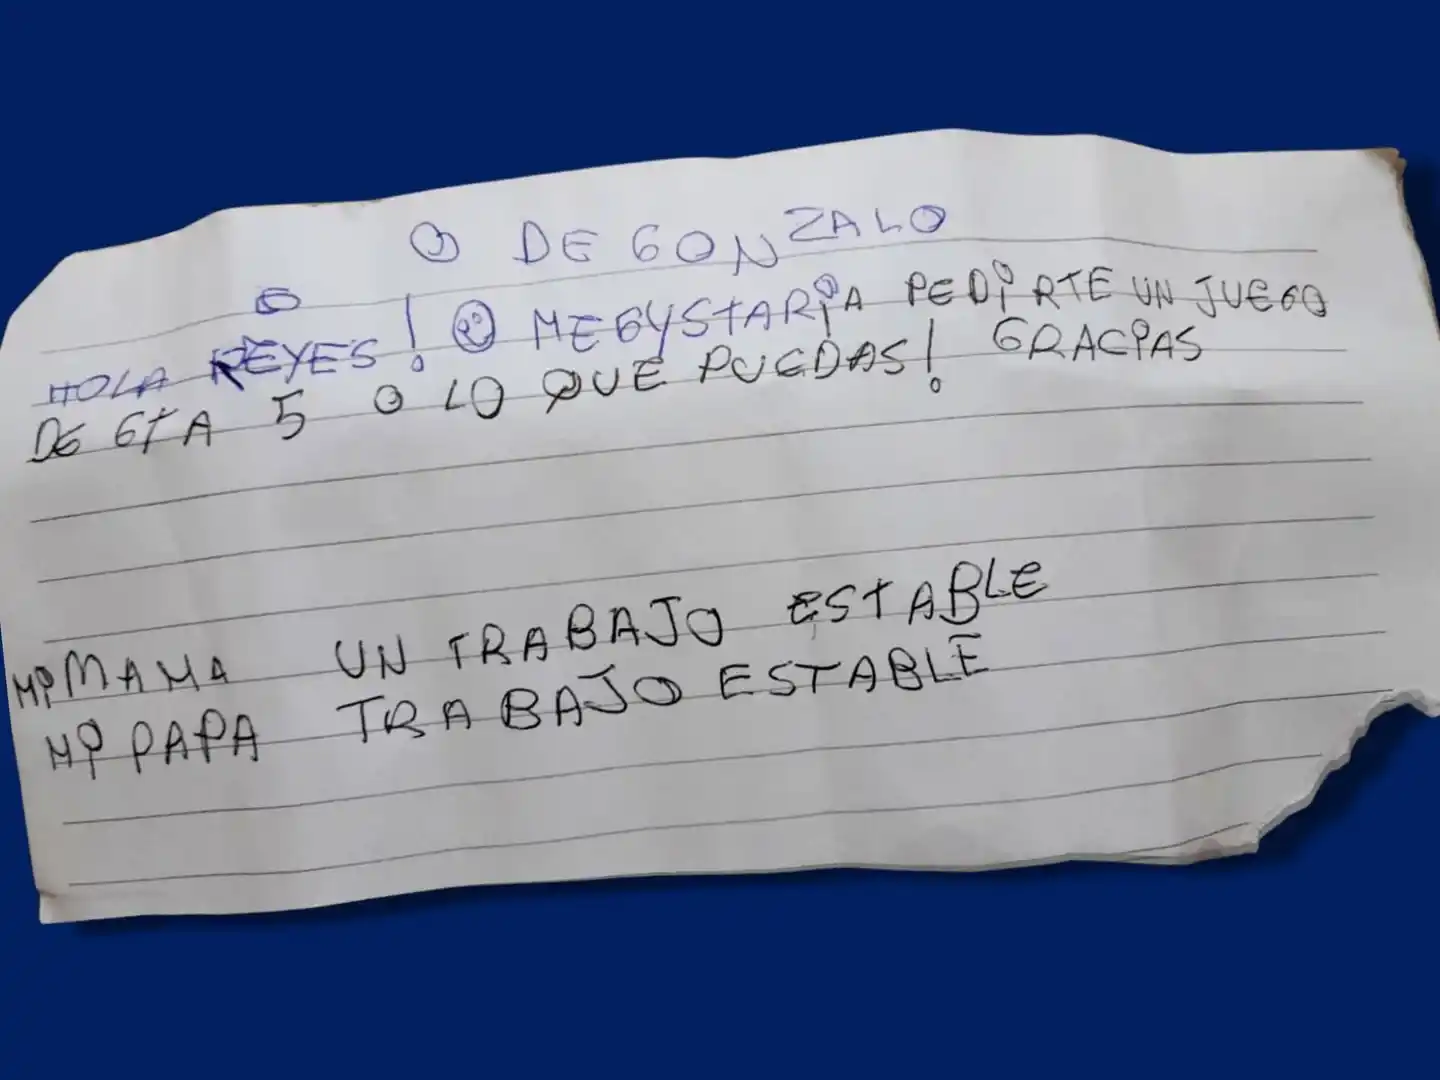 DE GONZALO
HOLA REYES! ME GUSTARiA PEDiRTE UN JUEGO
DE GTA 5 O LO QUE PUEDAS! GRACiAS
Mi MAMA UN TRABAJO ESTABLE
Mi PAPA TRABAJO ESTABLE